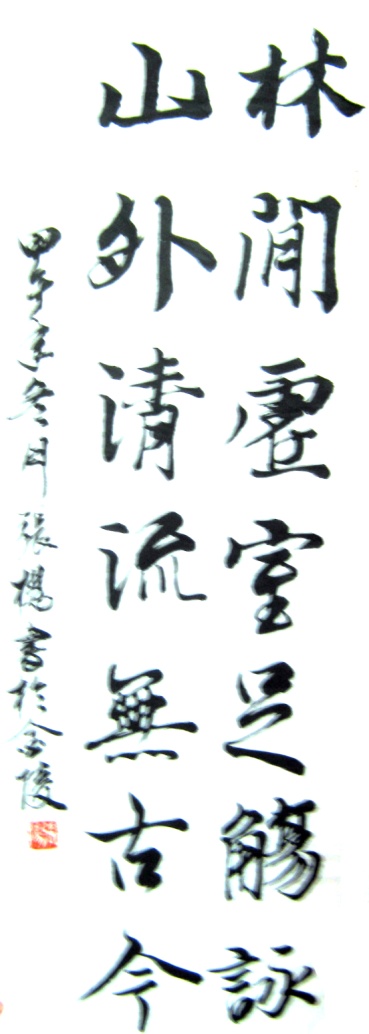 林間虛室足觴詠
山外清流無古今
甲午年冬月張楊書於金陵